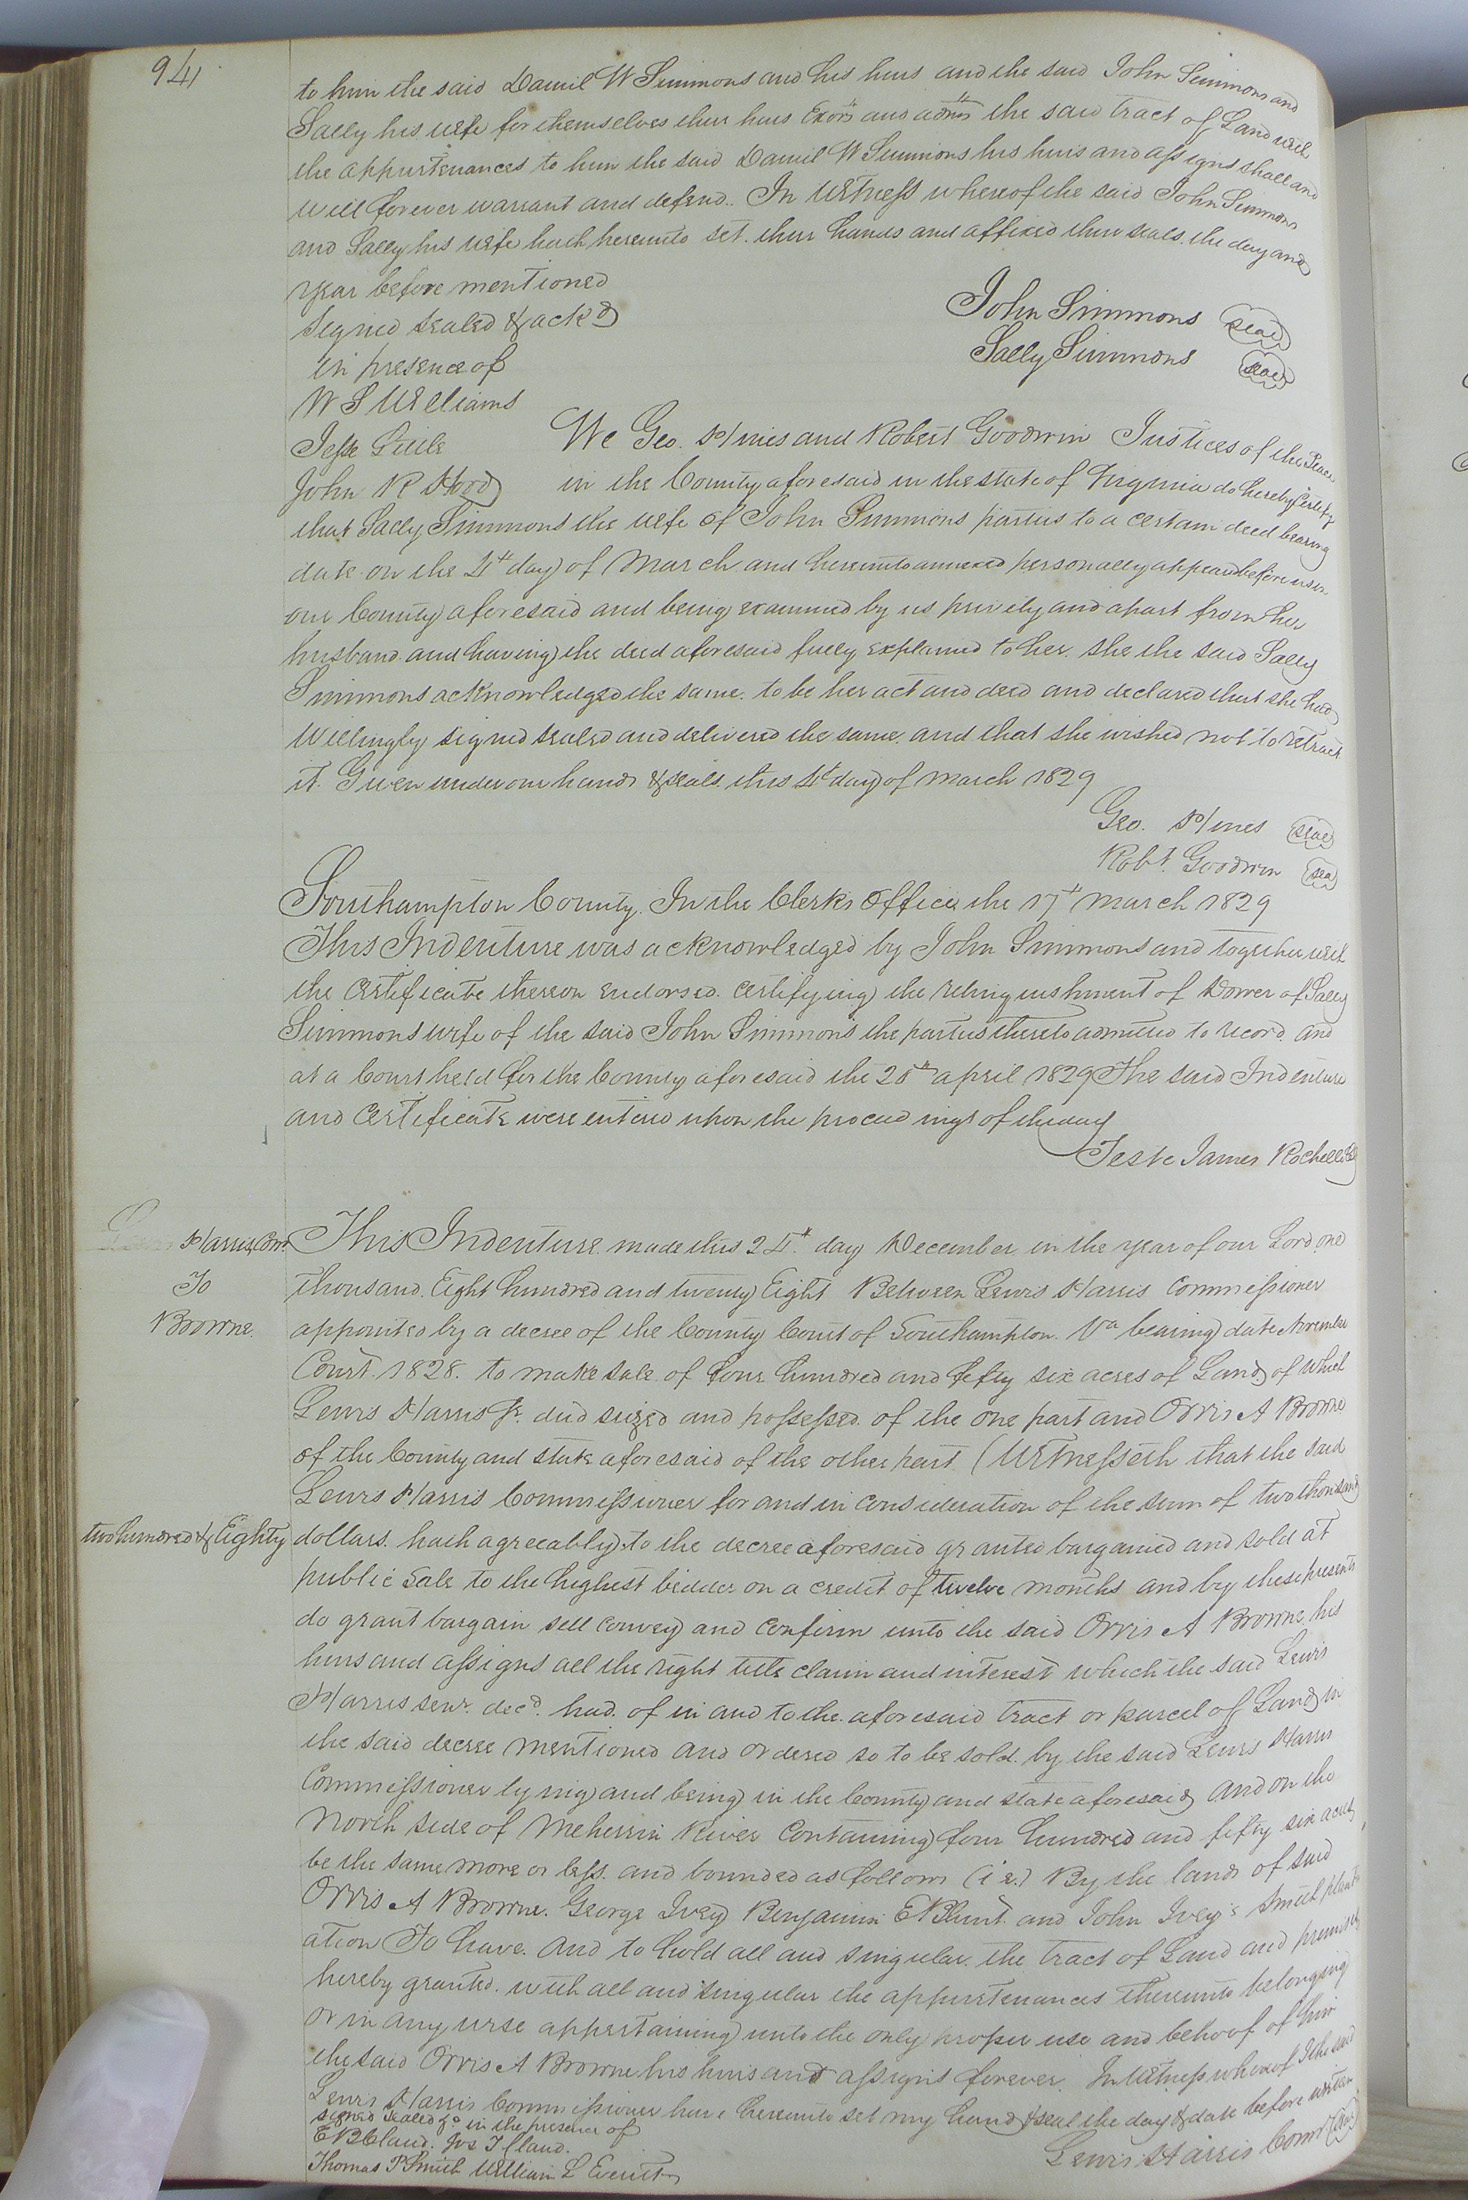 94
to him the said Daniel W Simmons and his heirs and the said John Simmons and
Sally his wife for themselves their heirs Exors and admrs the said tract of Land with
the appurtenances to him the said Daniel W Simmons his heirs and assigns shall and
will forever warrant and defend. In Witness whereof the said John Simmons
and Sally his wife hath hereunto set their hands and affixed their seals the day and
year before mentioned
Signed sealed & ackd
in presence of
John Simmons seal
Sally Simmons seal
W S Williams
Jesse Little
John R Hood
We Geo. Hines and Robert Goodwin Justices of the Peace
in the County aforesaid in the state of Virginia do hereby Certify
that Sally Simmons the wife of John Simmons parties to a certain deed bearing
date on the 4th day of March and hereunto annexed personally appeard before us in
our County aforesaid and being examined by us privily and apart from her
husband and having the deed aforesaid fully explained to her she the said Sally
Simmons acknowledged the same to be her act and deed and declared that she had
Willingly signed sealed and delivered the same and that she wished not to retract
it. Given under our hands & seals this 4th day of March 1829
Geo. Hines seal
Robt. Goodwin seal
Southampton County. In the Clerks Office the 17th March 1829
This Indenture was acknowledged by John Simmons and together with
the Certificate thereon endorsed certifying the relinquishment of Dower of Sally
Simmons wife of the said John Simmons the parties thereto admitted to record and
at a Court held for the County aforesaid the 20th april 1829 The said Indenture
and Certificate were entered upon the proceedings of the day
Teste James Rochelle
Harris Comr
To
Browne.
This Indenture made this 24th day December in the year of our Lord one
thousand Eight hundred and twenty Eight Between Lewis Harris Commissioner
appointed by a decree of the County Court of Southampton Va bearing date November
Court 1828. to make sale of four hundred and fifty six acres of Land of which
Lewis Harris Sr. died seized and possessed of the one part and Orris A Browne
of the County and state aforesaid of the other part (Witnesseth that the said
Lewis Harris Commissioner for and in consideration of the sum of two thousand
two hundred & Eighty
dollars. hath agreeably to the decree aforesaid granted bargained and sold at
public Sale to the highest bidder on a credit of twelve months and by these presents
do grant bargain sell convey and confirm unto the said Orris A Browne his
heirs and assigns all the right title claim and interest which the said Lewis
Harris senr. decd. had of in and to the aforesaid tract or parcel of Land in
the said decree mentioned and ordered so to be sold by the said Lewis Harris
Commissioner lying and being in the County and state aforesaid and on the
North side of Meherrin River Containing four hundred and fifty six acres
be the same more or less. and bounded as follows (i e.) By the lands of said
Orris A Browne. George Ivey Benjamin E Blunt and John Ivey's Smith plant
ation To have. and to hold all and singular the tract of Land and premises
hereby granted. with all and singular the appurtenances thereunto belonging
or in any wise appertaining unto the only proper use and behoof of him
the said Orris A Browne his heirs and assigns forever. In Witness whereof I the said
Lewis Harris Commissioner have hereunto set my hand & seal the day & date before written
signed sealed &c in the presence of
Lewis Harris Comr seal
E B Claud. Jos T Claud.
Thomas P Smith William L Everitt